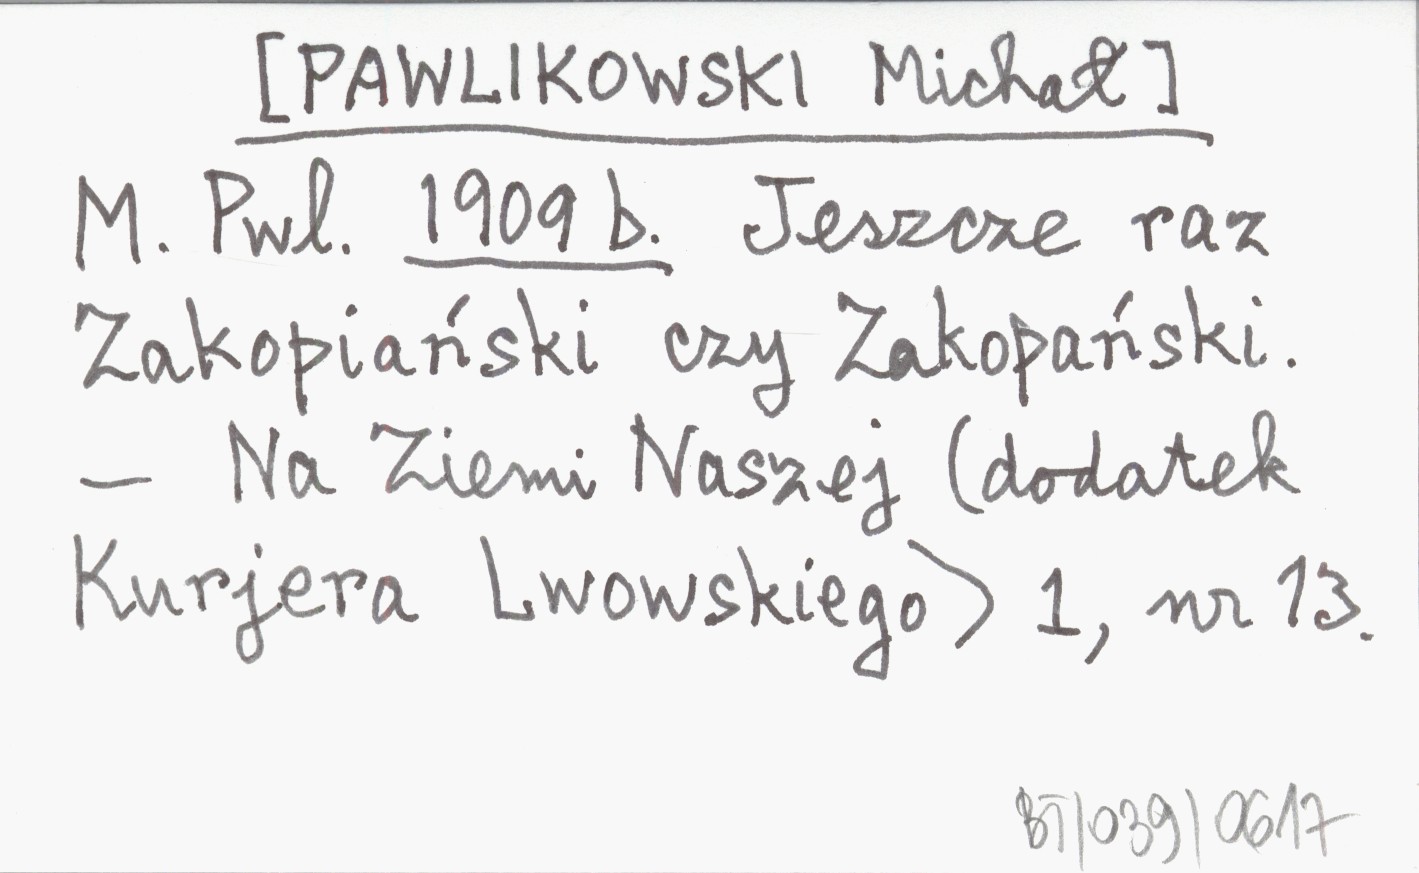 [PAWLIKOWSKI Michał]
M. Pwl. 1909 b. Jeszcze raz
Zakopiański czy Zakopański.
— Na Ziemi Naszej (dodatek
Kurjera Lwowskiego) 1, nr 13.
BT/039/0617